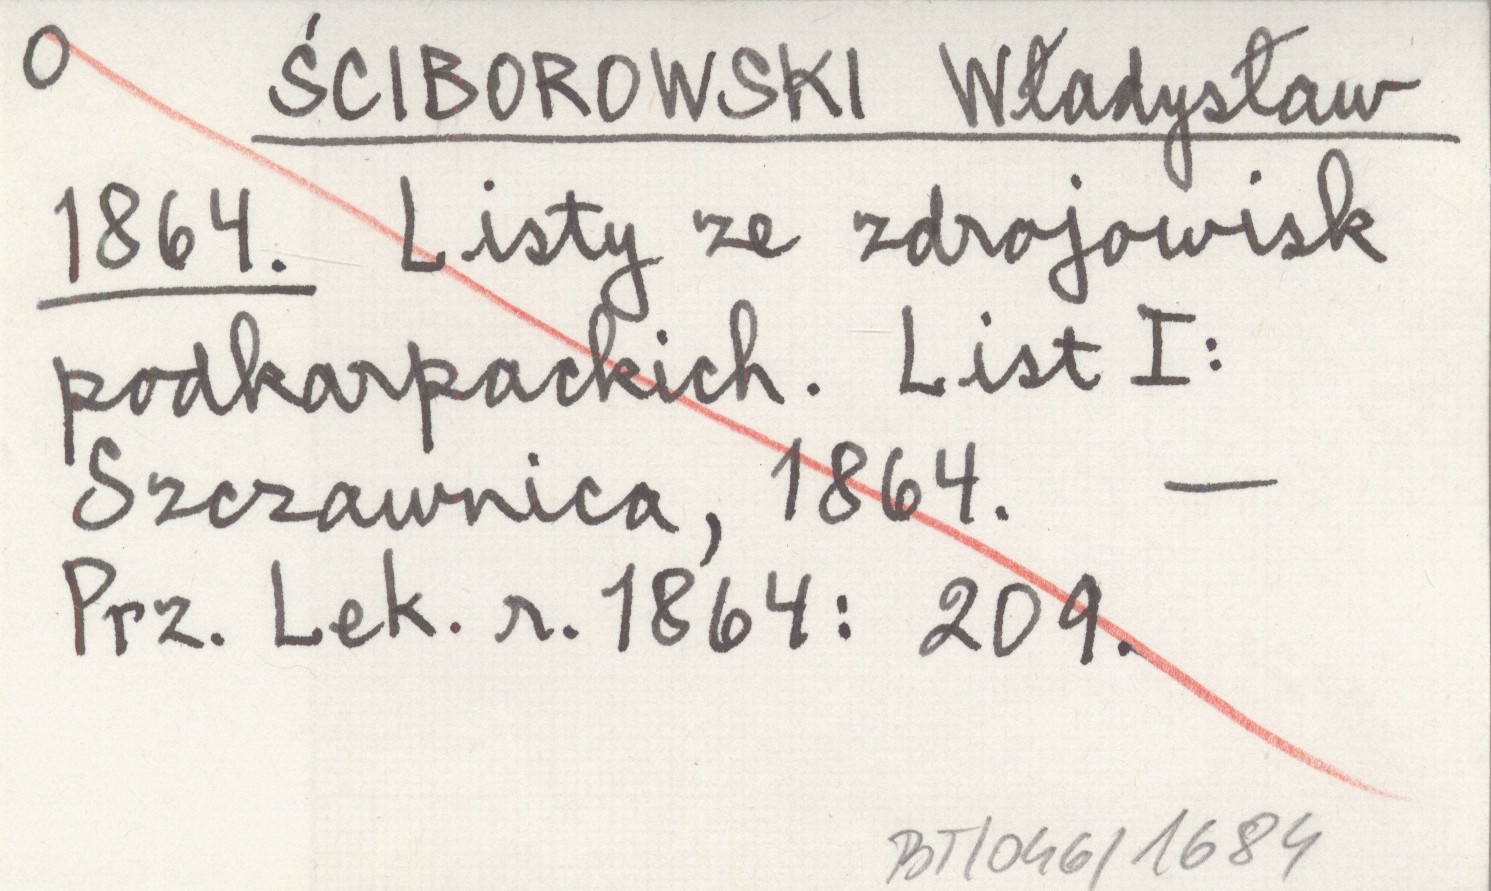 O ŚCIBOROWSKI Władysław
1864. Listy ze zdrojowisk
podkarpackich. List I:
Szczawnica, 1864. —
Prz. Lek. r. 1864: 209.
BT/046/1684